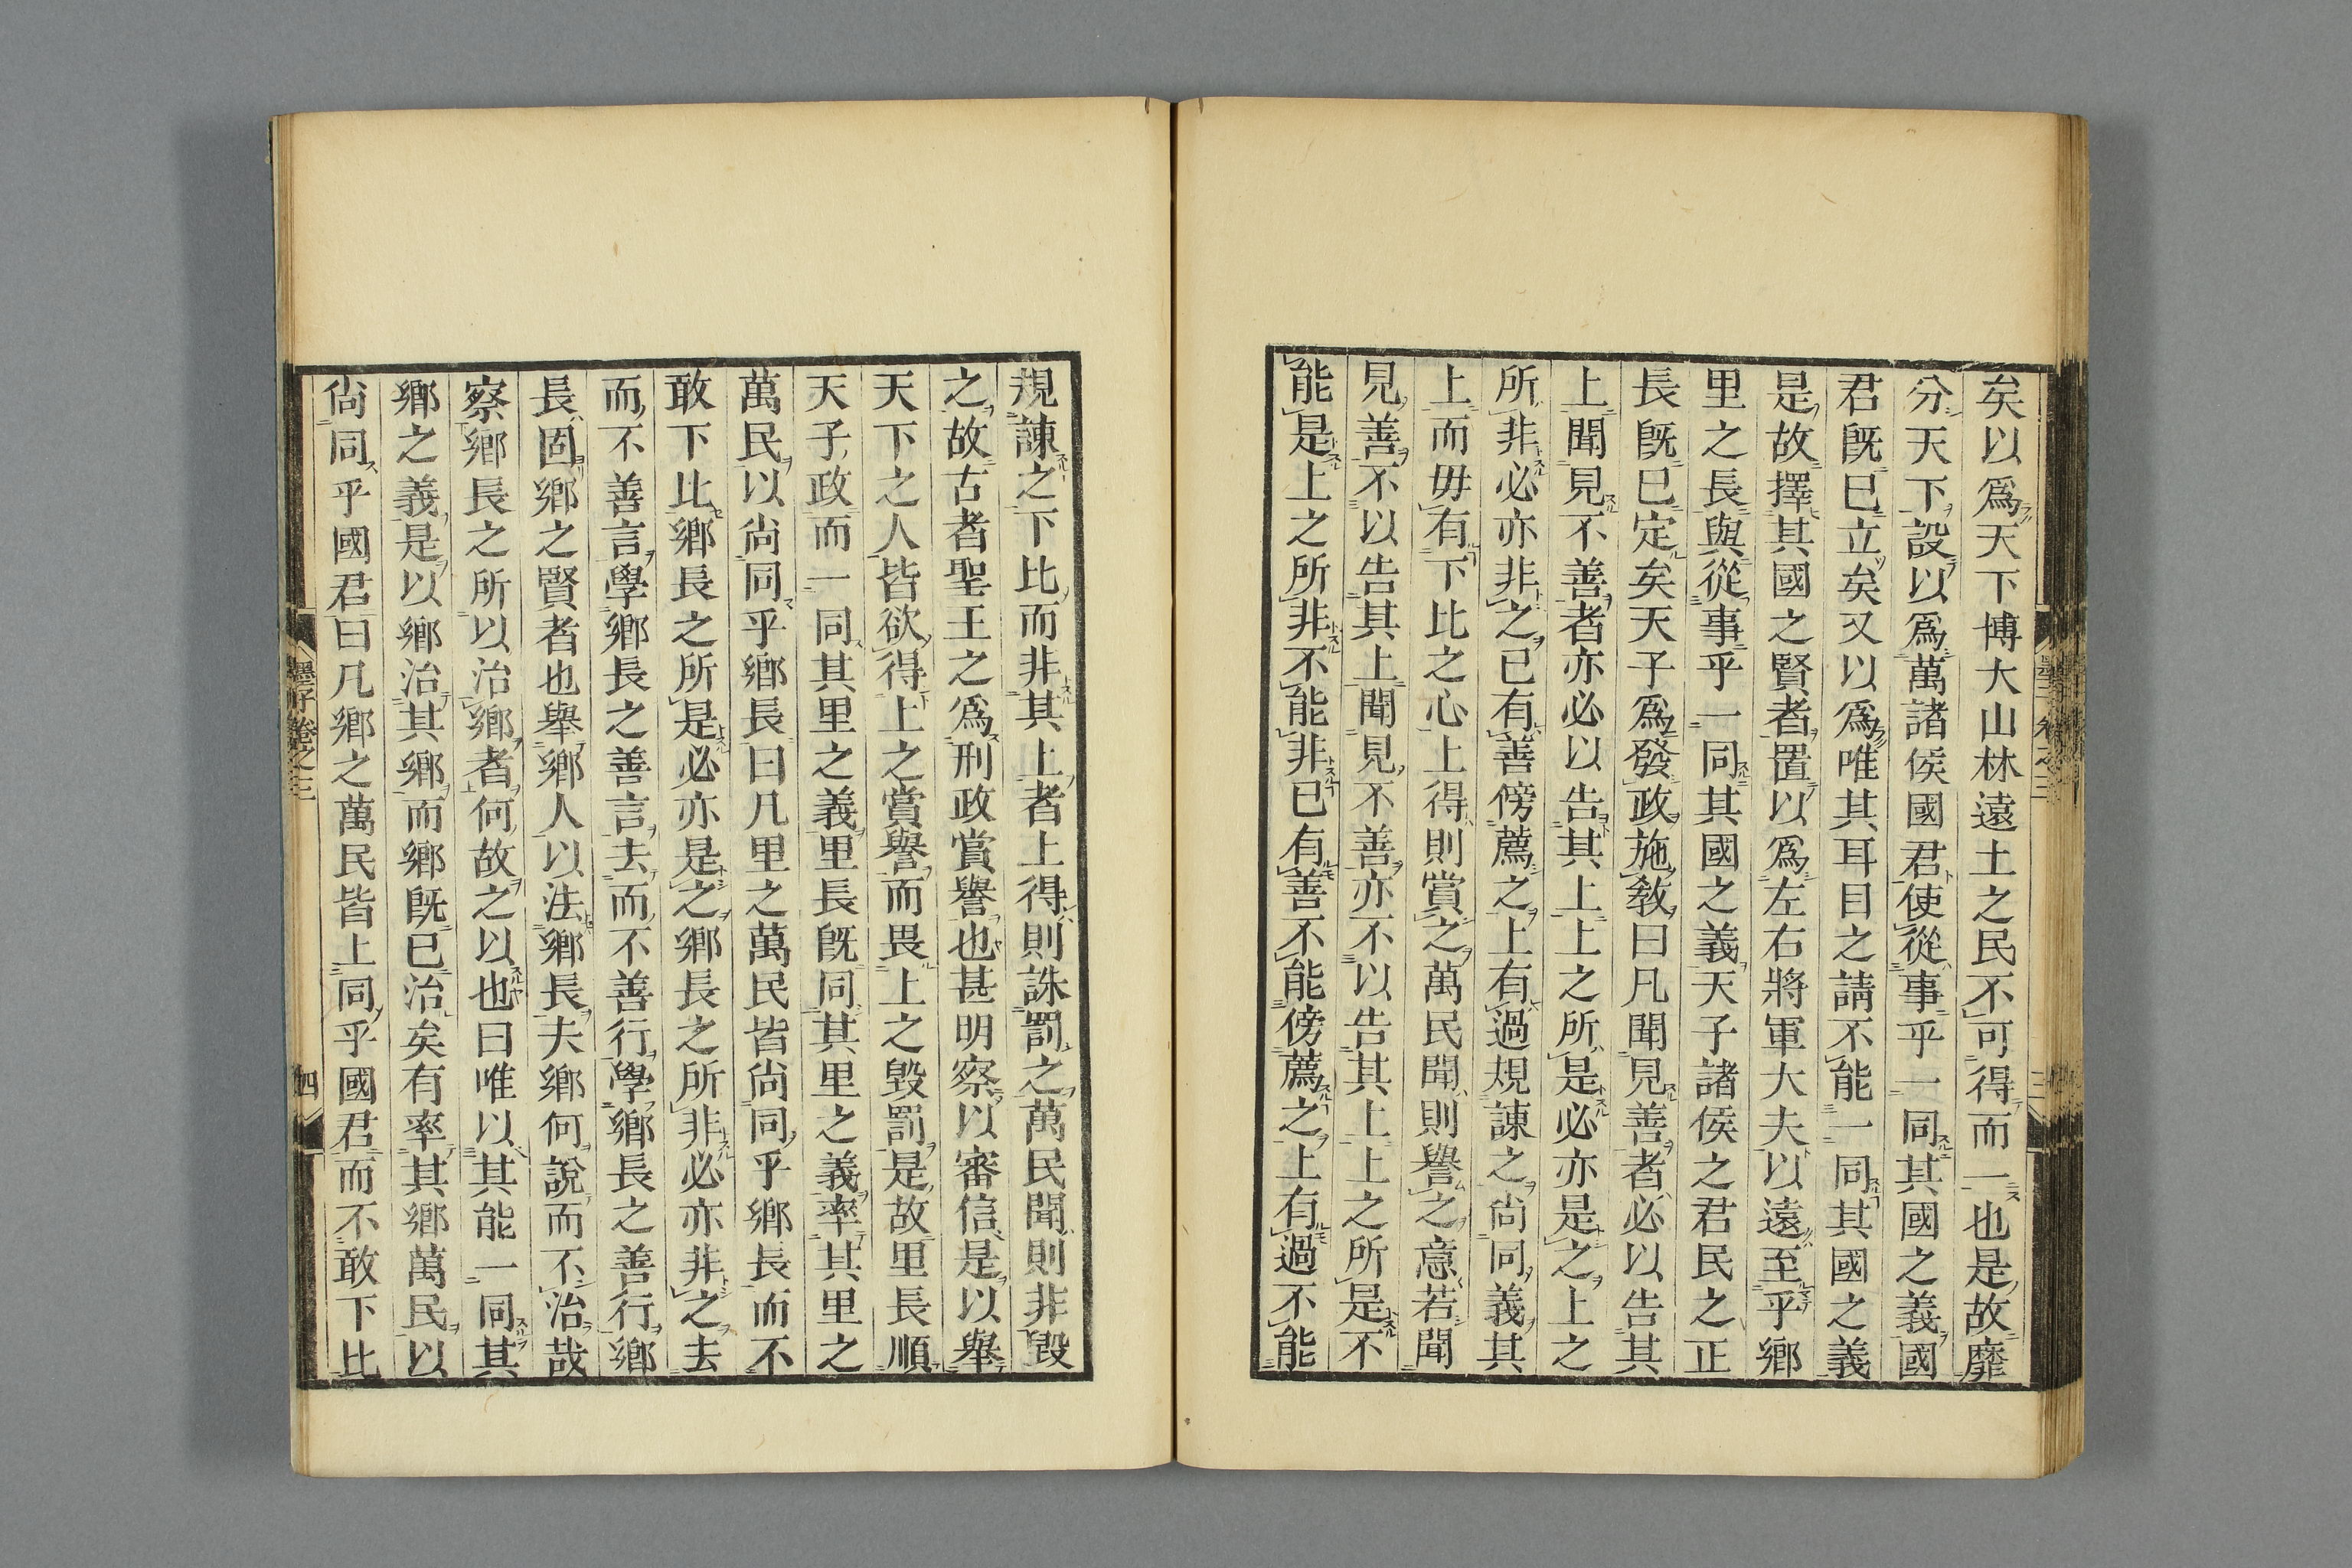 矣以爲天下博大山林遠土之民不可得而一也是故靡
分天下設以爲萬諸侯國君使從事乎一同其國之義國
君旣已立矣又以爲唯其耳目之請不能一同其國之義
是故擇其國之賢者置以爲左右將軍大夫以遠至乎鄉
里之長與從事乎一同其國之義天子諸侯之君民之正
長旣已定矣天子爲發政施敎曰凡聞見善者必以告其
上聞見不善者亦必以告其上上之所是必亦是之上之
所非必亦非之已有善傍薦之上有過規諫之尙同義其
上而毋有下比之心上得則賞之萬民聞則譽之意若聞
見善不以告其上聞見不善亦不以告其上上之所是不
能是上之所非不能非已有善不能傍薦之上有過不能
規諫之下比而非其上者上得則誅罰之萬民聞則非毀
之故古者聖王之爲刑政賞譽也甚明察以審信是以舉
天下之人皆欲得上之賞譽而畏上之毀罰是故里長順
天子政而一同其里之義里長旣同其里之義率其里之
萬民以尙同乎鄉長曰凡里之萬民皆尙同乎鄉長而不
敢下比鄉長之所是必亦是之鄉長之所非必亦非之去
而不善言學鄉長之善言去而不善行學鄉長之善行鄉
長固鄉之賢者也舉鄉人以法鄉長夫鄉何說而不治哉
察鄉長之所以治鄉者何故之以也曰唯以其能一同其
鄉之義是以鄉治其鄉而鄉旣已治矣有率其鄉萬民以
尙同乎國君曰凡鄉之萬民皆上同乎國君而不敢下比
墨子卷之三
四